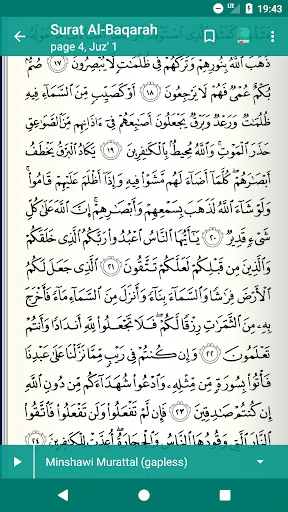 19:43
LTE
Surat Al-Baqarah
page 4, Juz' 1
ذَهَبَ ٱللَّهُ بِنُورِهِمْ وَتَرَكَهُمْ فِى ظُلُمَٰتٍ لَّا يُبْصِرُونَ ١٧ صُمٌّۢ
بُكْمٌ عُمْىٌ فَهُمْ لَا يَرْجِعُونَ ١٨ أَوْ كَصَيِّبٍ مِّنَ ٱلسَّمَآءِ فِيهِ
ظُلُمَٰتٌ وَرَعْدٌ وَبَرْقٌ يَجْعَلُونَ أَصَٰبِعَهُمْ فِىٓ ءَاذَانِهِم مِّنَ ٱلصَّوَٰعِقِ
حَذَرَ ٱلْمَوْتِ ۚ وَٱللَّهُ مُحِيطٌۢ بِٱلْكَٰفِرِينَ ١٩ يَكَادُ ٱلْبَرْقُ يَخْطَفُ
أَبْصَٰرَهُمْ ۖ كُلَّمَآ أَضَآءَ لَهُم مَّشَوْا۟ فِيهِ وَإِذَآ أَظْلَمَ عَلَيْهِمْ قَامُوا۟ ۚ
وَلَوْ شَآءَ ٱللَّهُ لَذَهَبَ بِسَمْعِهِمْ وَأَبْصَٰرِهِمْ ۚ إِنَّ ٱللَّهَ عَلَىٰ كُلِّ
شَىْءٍ قَدِيرٌ ٢٠ يَٰٓأَيُّهَا ٱلنَّاسُ ٱعْبُدُوا۟ رَبَّكُمُ ٱلَّذِى خَلَقَكُمْ
وَٱلَّذِينَ مِن قَبْلِكُمْ لَعَلَّكُمْ تَتَّقُونَ ٢١ ٱلَّذِى جَعَلَ لَكُمُ
ٱلْأَرْضَ فِرَٰشًا وَٱلسَّمَآءَ بِنَآءً وَأَنزَلَ مِنَ ٱلسَّمَآءِ مَآءً فَأَخْرَجَ
بِهِۦ مِنَ ٱلثَّمَرَٰتِ رِزْقًا لَّكُمْ ۖ فَلَا تَجْعَلُوا۟ لِلَّهِ أَندَادًا وَأَنتُمْ
تَعْلَمُونَ ٢٢ وَإِن كُنتُمْ فِى رَيْبٍ مِّمَّا نَزَّلْنَا عَلَىٰ عَبْدِنَا
فَأْتُوا۟ بِسُورَةٍ مِّن مِّثْلِهِۦ وَٱدْعُوا۟ شُهَدَآءَكُم مِّن دُونِ ٱللَّهِ
إِن كُنتُمْ صَٰدِقِينَ ٢٣ فَإِن لَّمْ تَفْعَلُوا۟ وَلَن تَفْعَلُوا۟ فَٱتَّقُوا۟
ٱلنَّارَ ٱلَّتِى وَقُودُهَا ٱلنَّاسُ وَٱلْحِجَارَةُ ۖ أُعِدَّتْ لِلْكَٰفِرِينَ ٢٤
Minshawi Murattal (gapless)